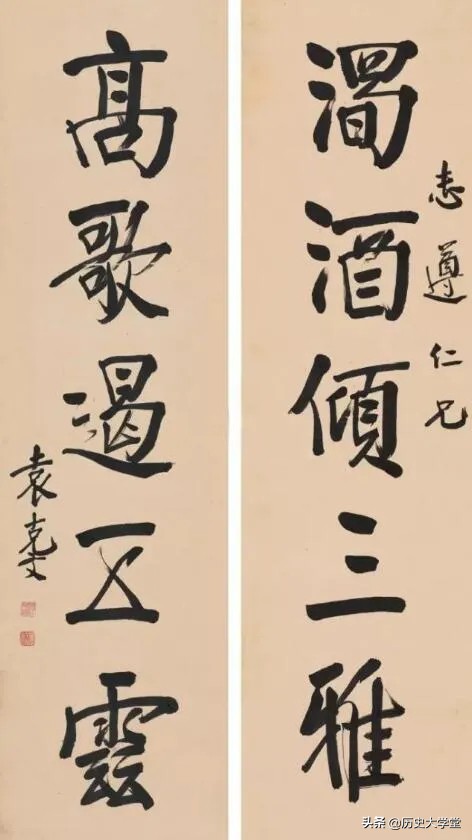 志遵仁兄
酒傾三雅
高歌遏五雲
袁克文
头条 @历史大学堂